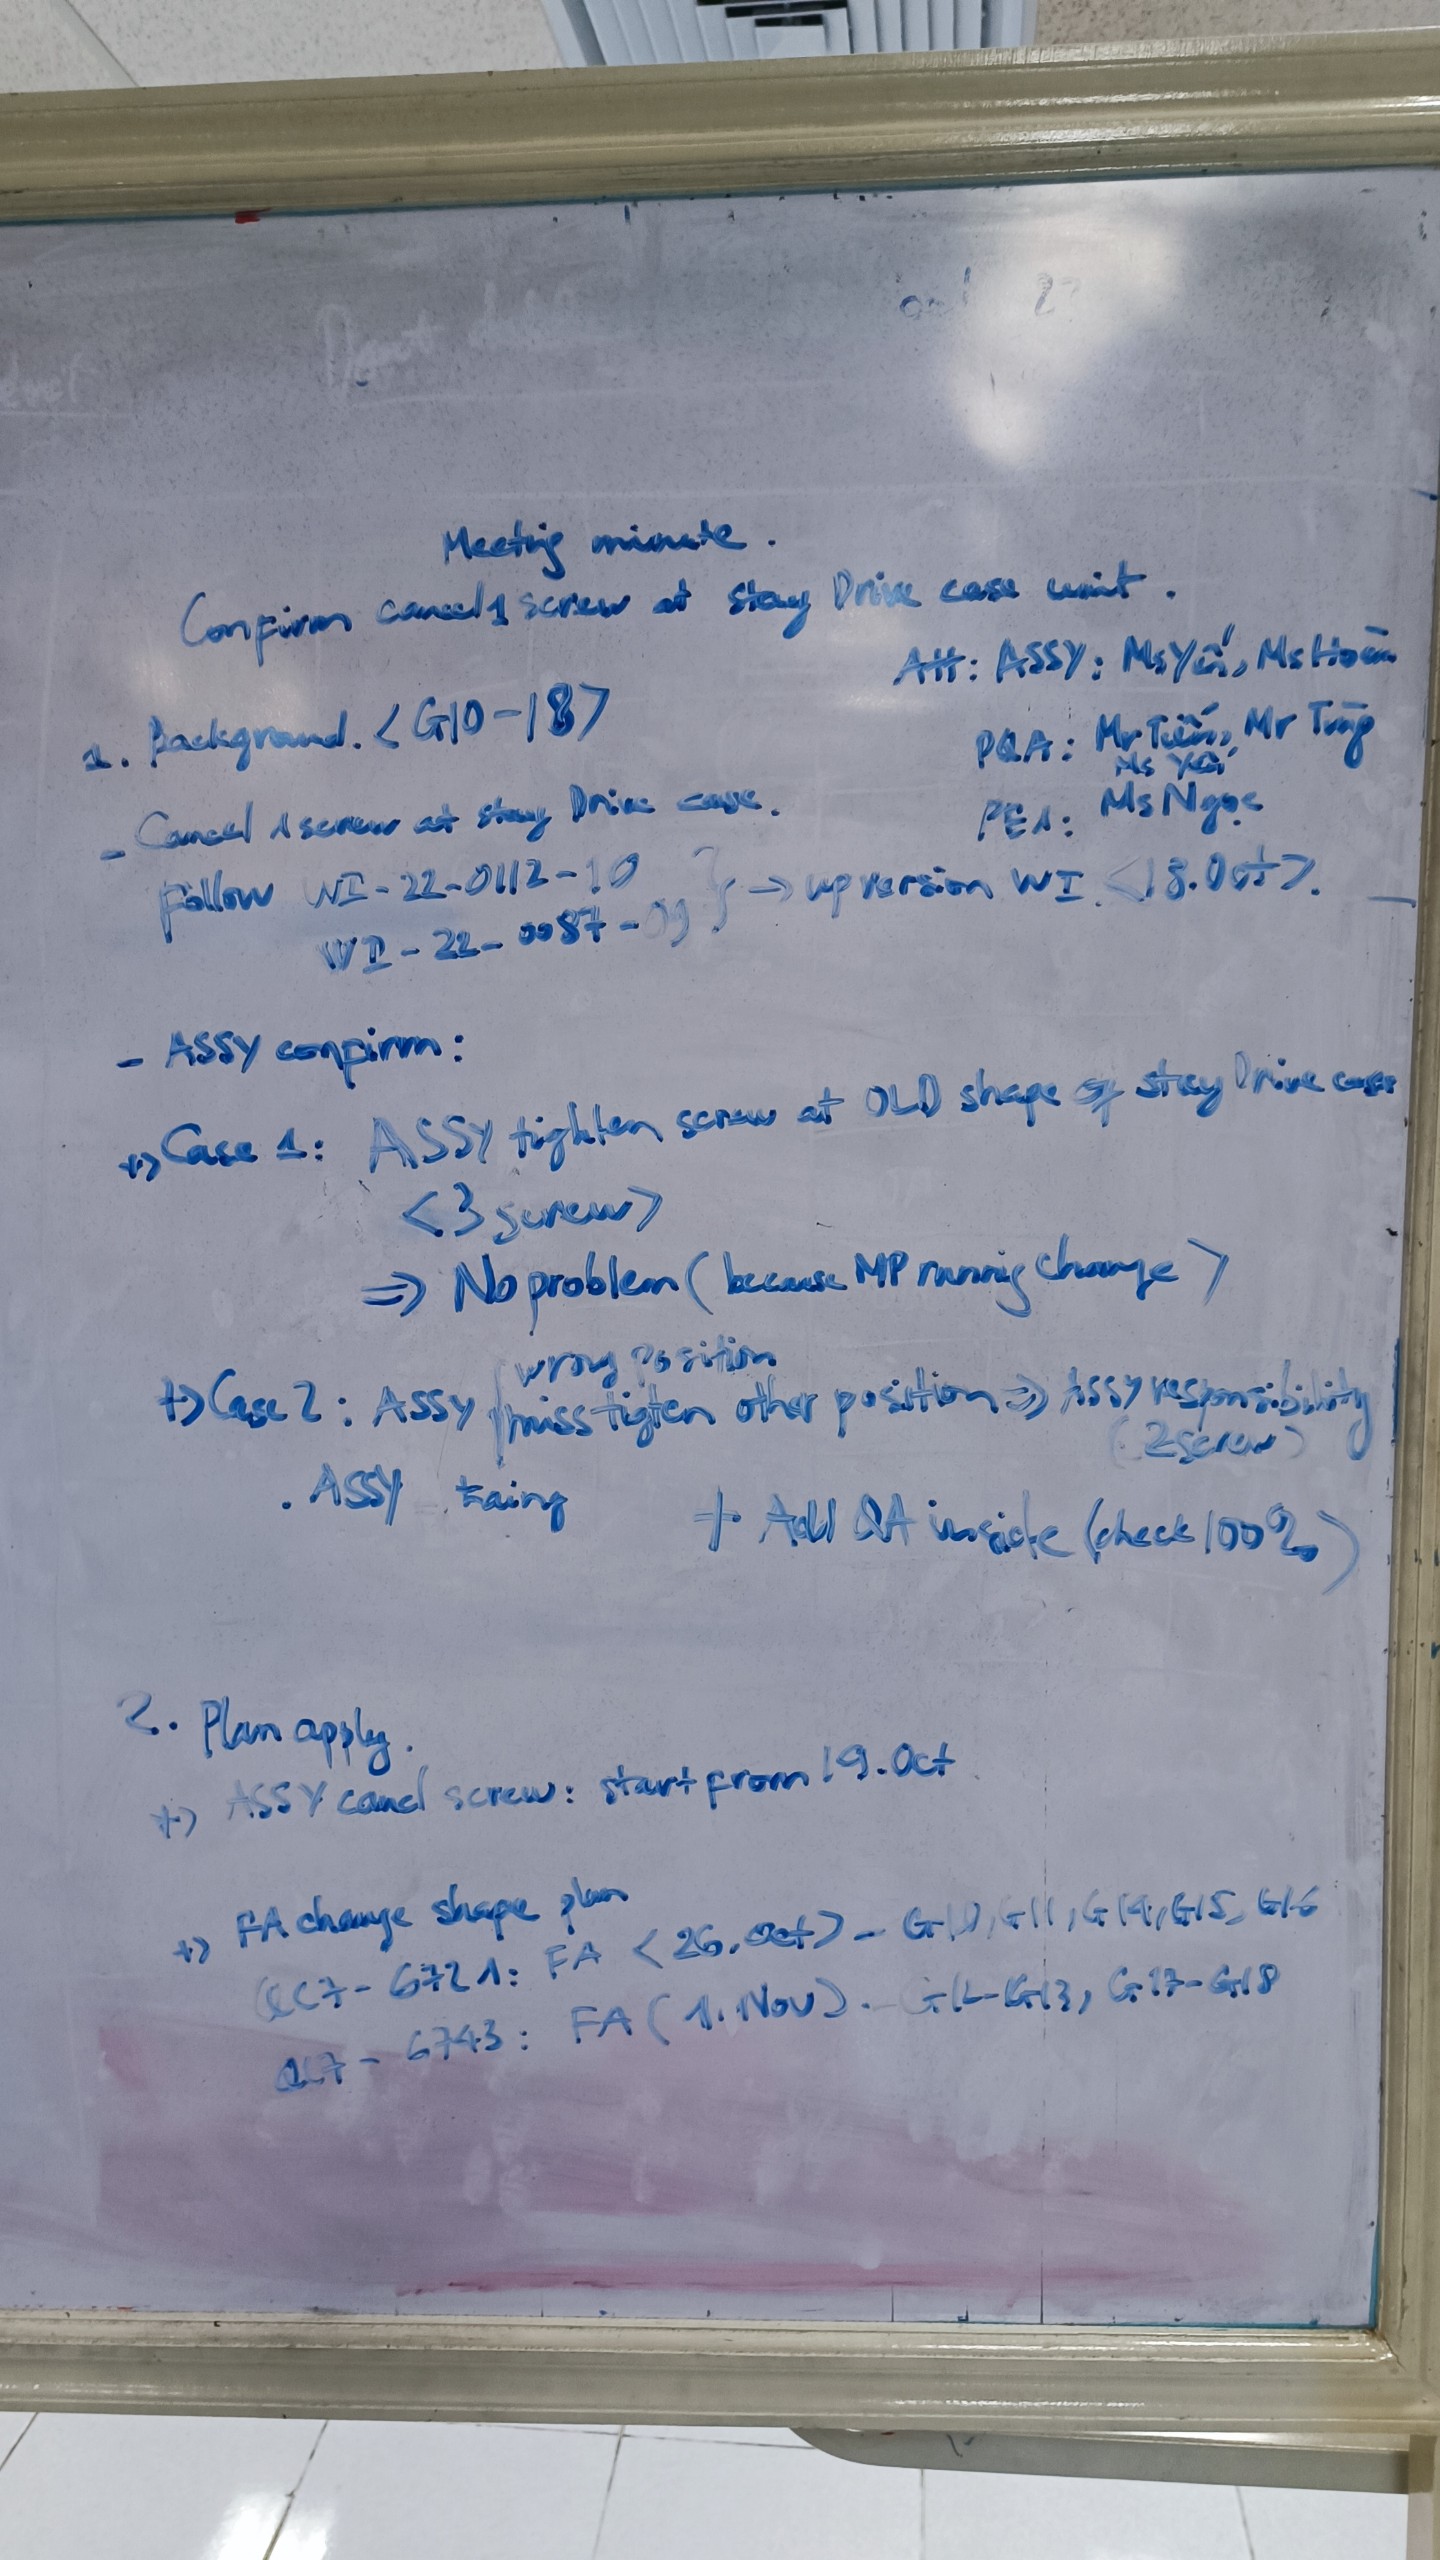 Meeting minute.
Confirm cancel 1 screw at stay Drive case unit.
Att: ASSY: Ms Yến, Ms Hoàn
1. Background. <G10-18>
PQA: Mr Tiến, Mr Tùng
Ms Yến
PE1: Ms Ngọc
- Cancel 1 screw at stay Drive case.
Follow WI-22-0112-10
WI-22-0087-09 } → up version WI <18.Oct>.
- ASSY confirm:
+> Case 1: ASSY tighten screw at OLD shape of stay Drive case
<3 screw>
=> No problem (because MP running change)
wrong position
+> Case 2: ASSY miss tigten other position => ASSY responsibility
(2 screw)
. ASSY traing
+ Add QA inside (check 100%)
2. Plan apply.
+> ASSY cancel screw: start from 19.Oct
+> FA change shape plan
QC7-6721: FA <26.Oct> - G10, G11, G14, G15, G16
QC7-6743: FA (1.Nov). - G12-G13, G17-G18